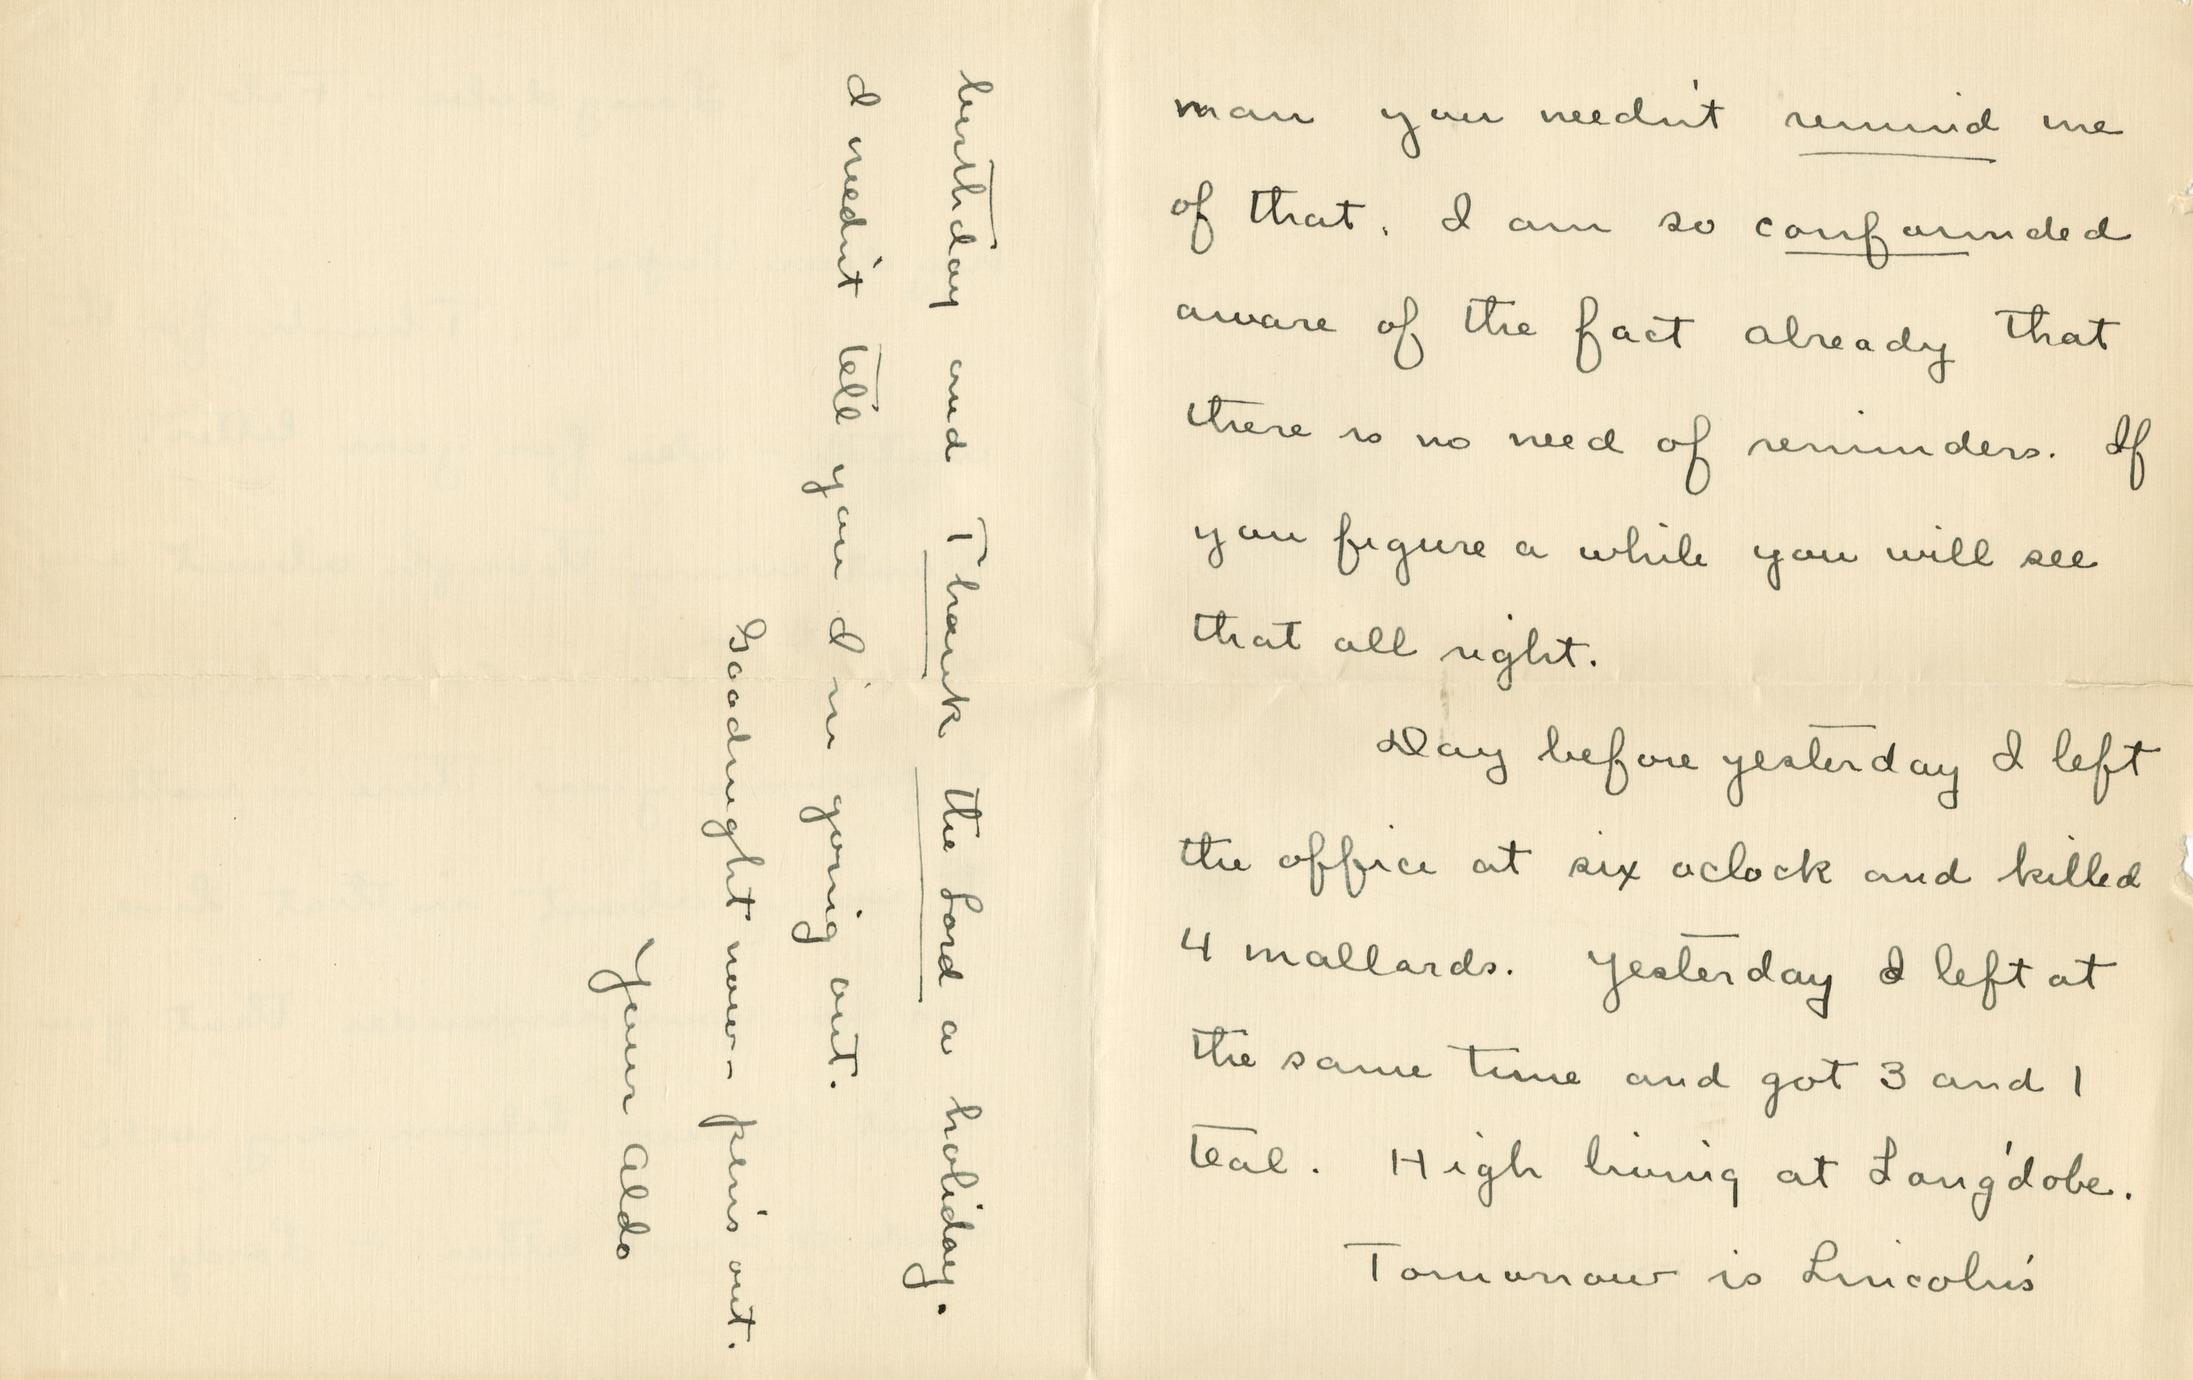 man you needn't remind me
of that. I am so confounded
aware of the fact already that
there is no need of reminders. If
you figure a while you will see
that all right.
Day before yesterday I left
the office at six oclock and killed
4 mallards. Yesterday I left at
the same time and got 3 and 1
teal. High living at Lang'dobe.
Tomorrow is Lincoln's
birthday and Thank the Lord a holiday.
I needn't tell you I'm going out.
Goodnight now - pen's out.
Your Aldo